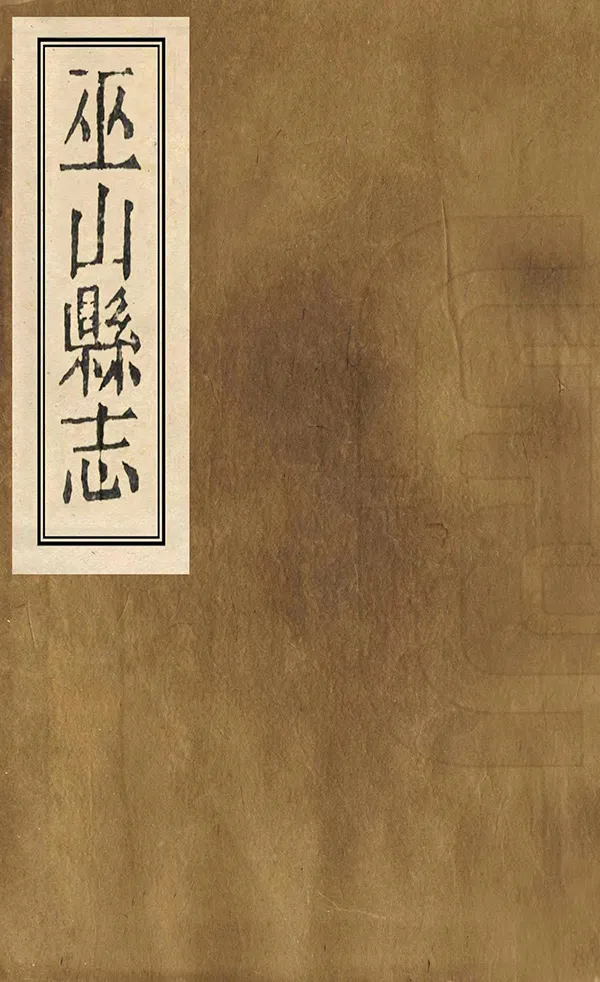 巫山縣志